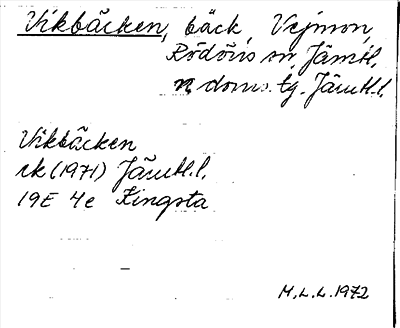 Vikbäcken, bäck, Vejmon,
Rödöns sn, Jämtl.
n. doms. tg. Jämtl.l.
Vikbäcken
ek (1971) Jämtl.l.
19E 4e Kingsta
M.L.L. 1972